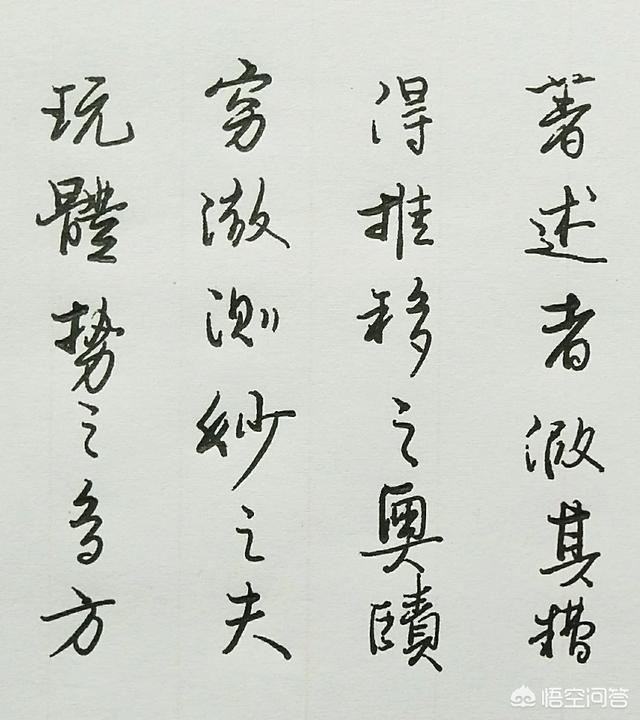 玩體势之多方
穷微测妙之夫
得推移之奥賾
著述者假其糟
悟空问答